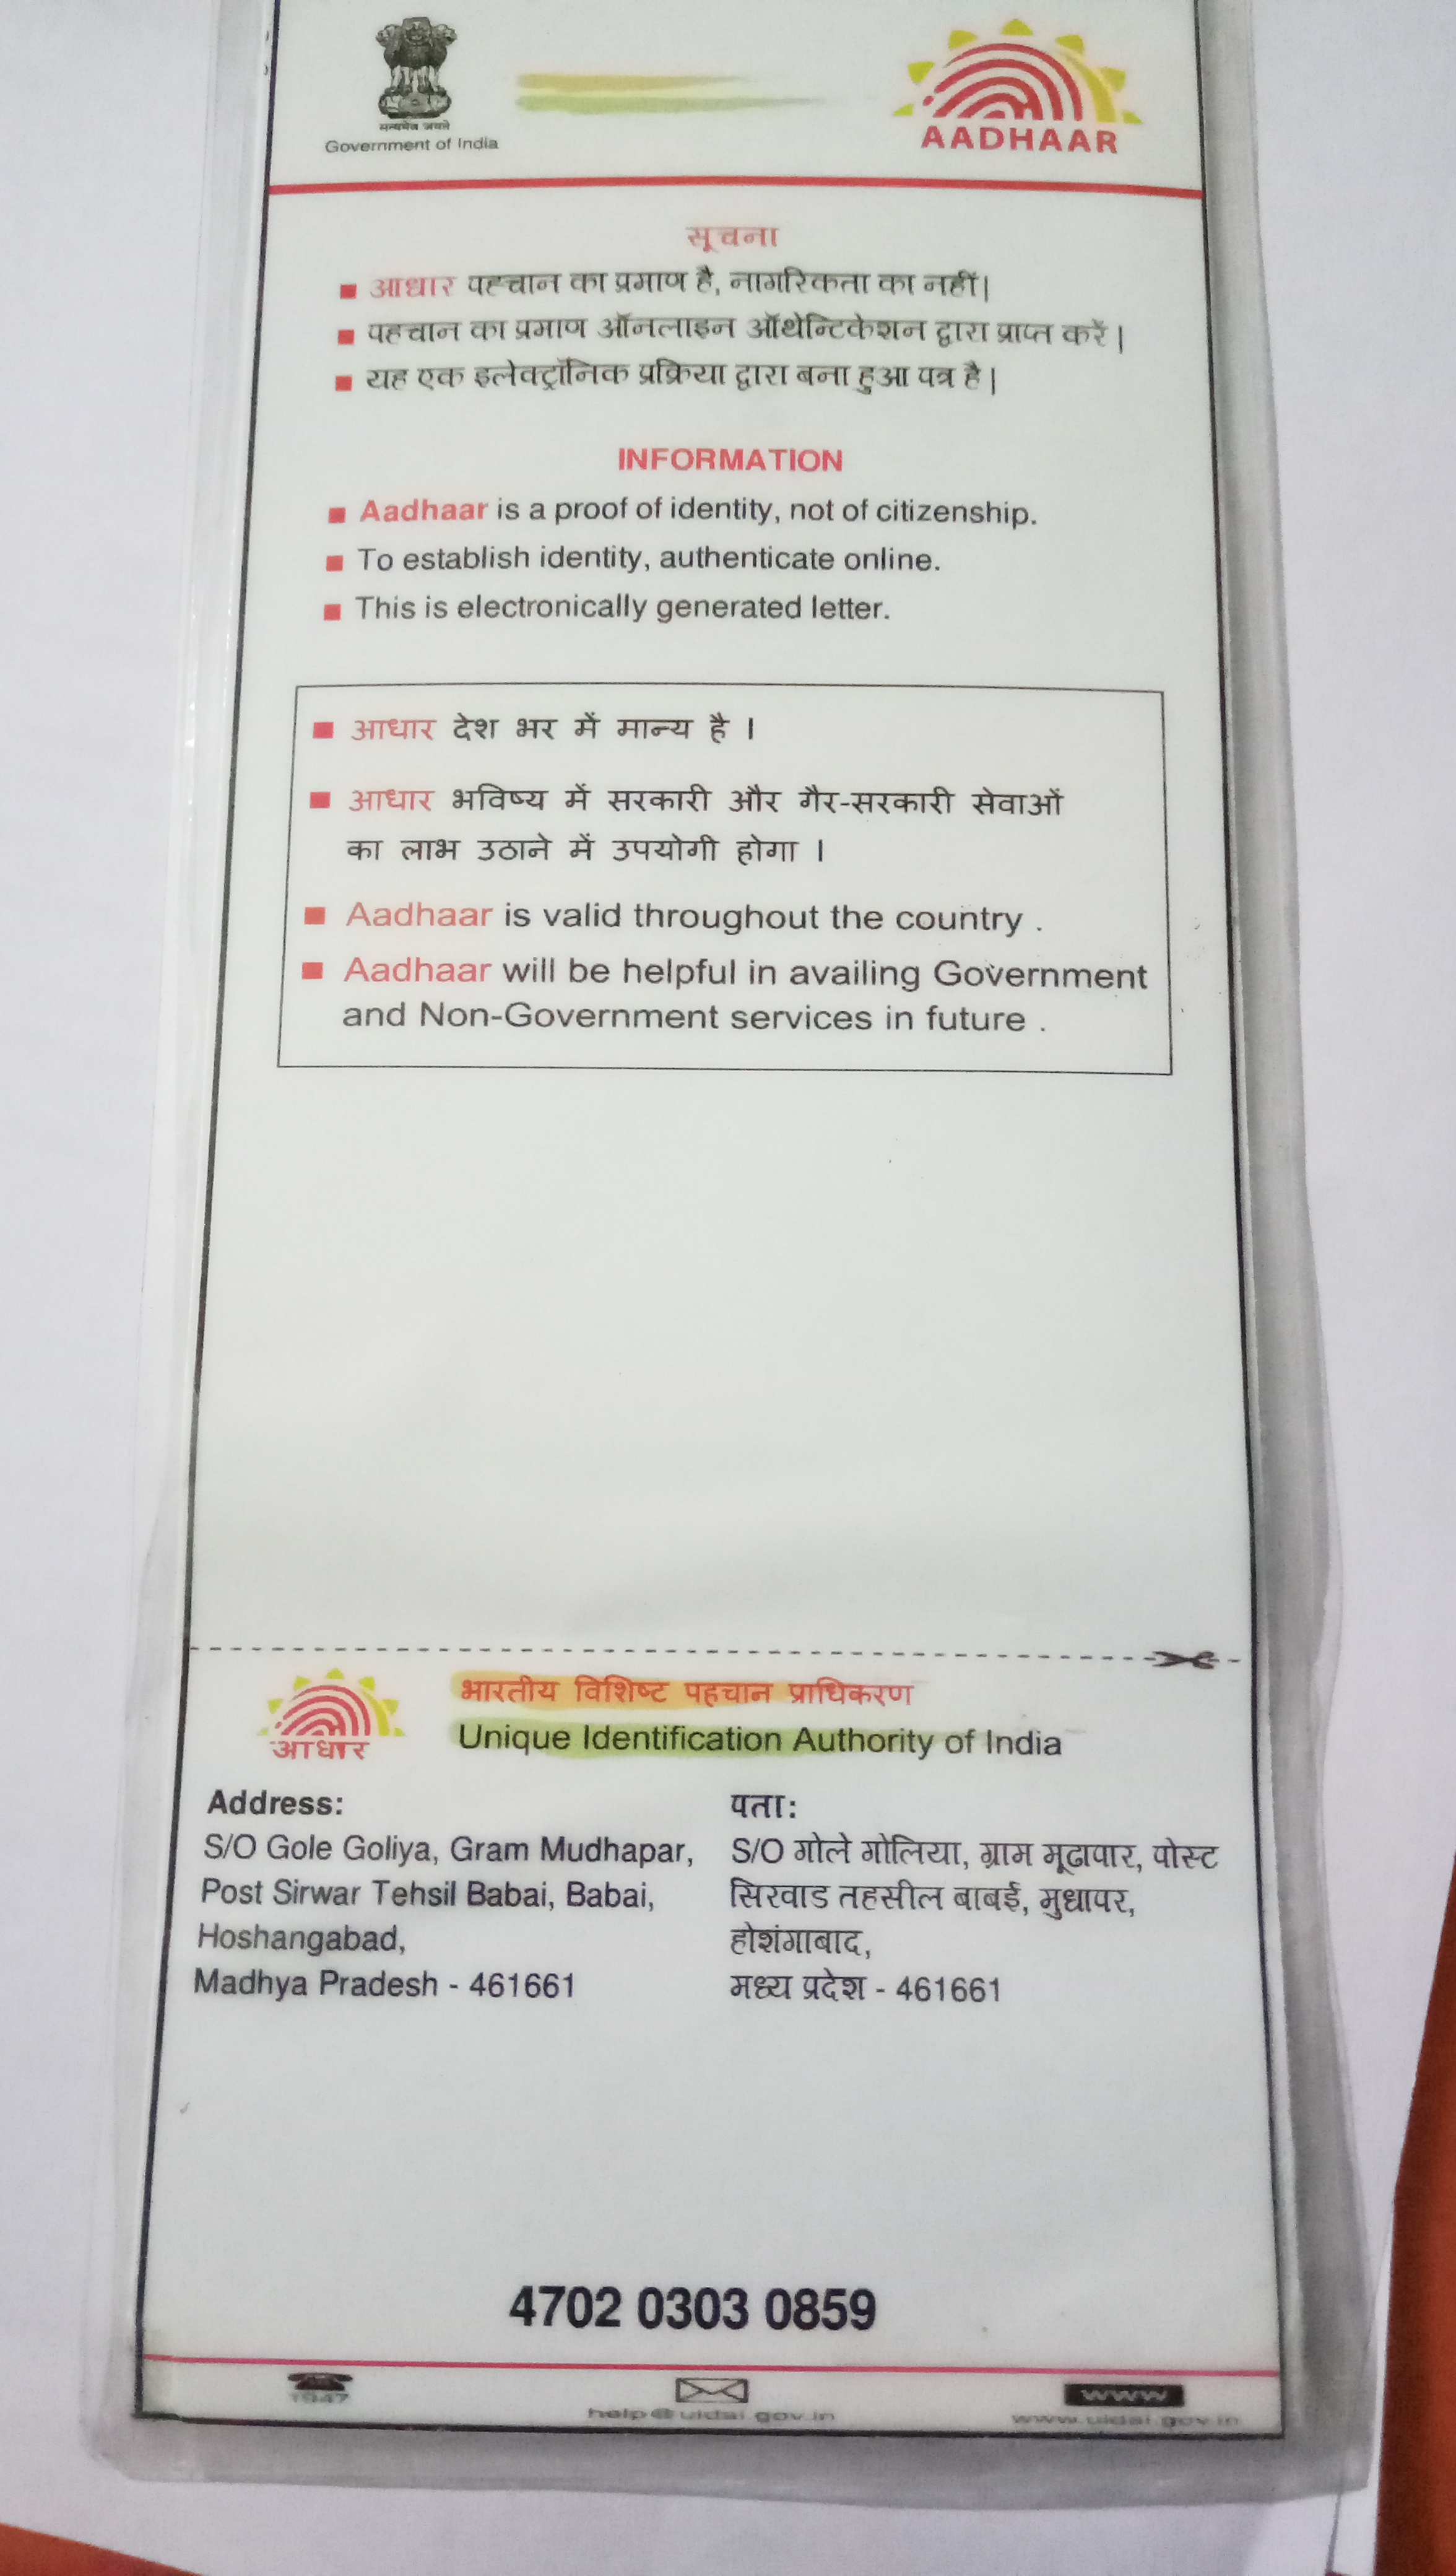 सत्यमेव जयते
Government of India
AADHAAR
सूचना
■ आधार पहचान का प्रमाण है, नागरिकता का नहीं|
■ पहचान का प्रमाण ऑनलाइन ऑथेन्टिकेशन द्वारा प्राप्त करें |
■ यह एक इलेक्ट्रॉनिक प्रक्रिया द्वारा बना हुआ पत्र है |
INFORMATION
■ Aadhaar is a proof of identity, not of citizenship.
■ To establish identity, authenticate online.
■ This is electronically generated letter.
■ आधार देश भर में मान्य है ।
■ आधार भविष्य में सरकारी और गैर-सरकारी सेवाओं
का लाभ उठाने में उपयोगी होगा ।
■ Aadhaar is valid throughout the country .
■ Aadhaar will be helpful in availing Government
and Non-Government services in future .
भारतीय विशिष्ट पहचान प्राधिकरण
Unique Identification Authority of India
आधार
Address:
S/O Gole Goliya, Gram Mudhapar,
Post Sirwar Tehsil Babai, Babai,
Hoshangabad,
Madhya Pradesh - 461661
पता:
S/O गोले गोलिया, ग्राम मूढापार, पोस्ट
सिरवाड तहसील बाबई, मुधापर,
होशंगाबाद,
मध्य प्रदेश - 461661
4702 0303 0859
1947
help@uidai.gov.in
www
www.uidai.gov.in